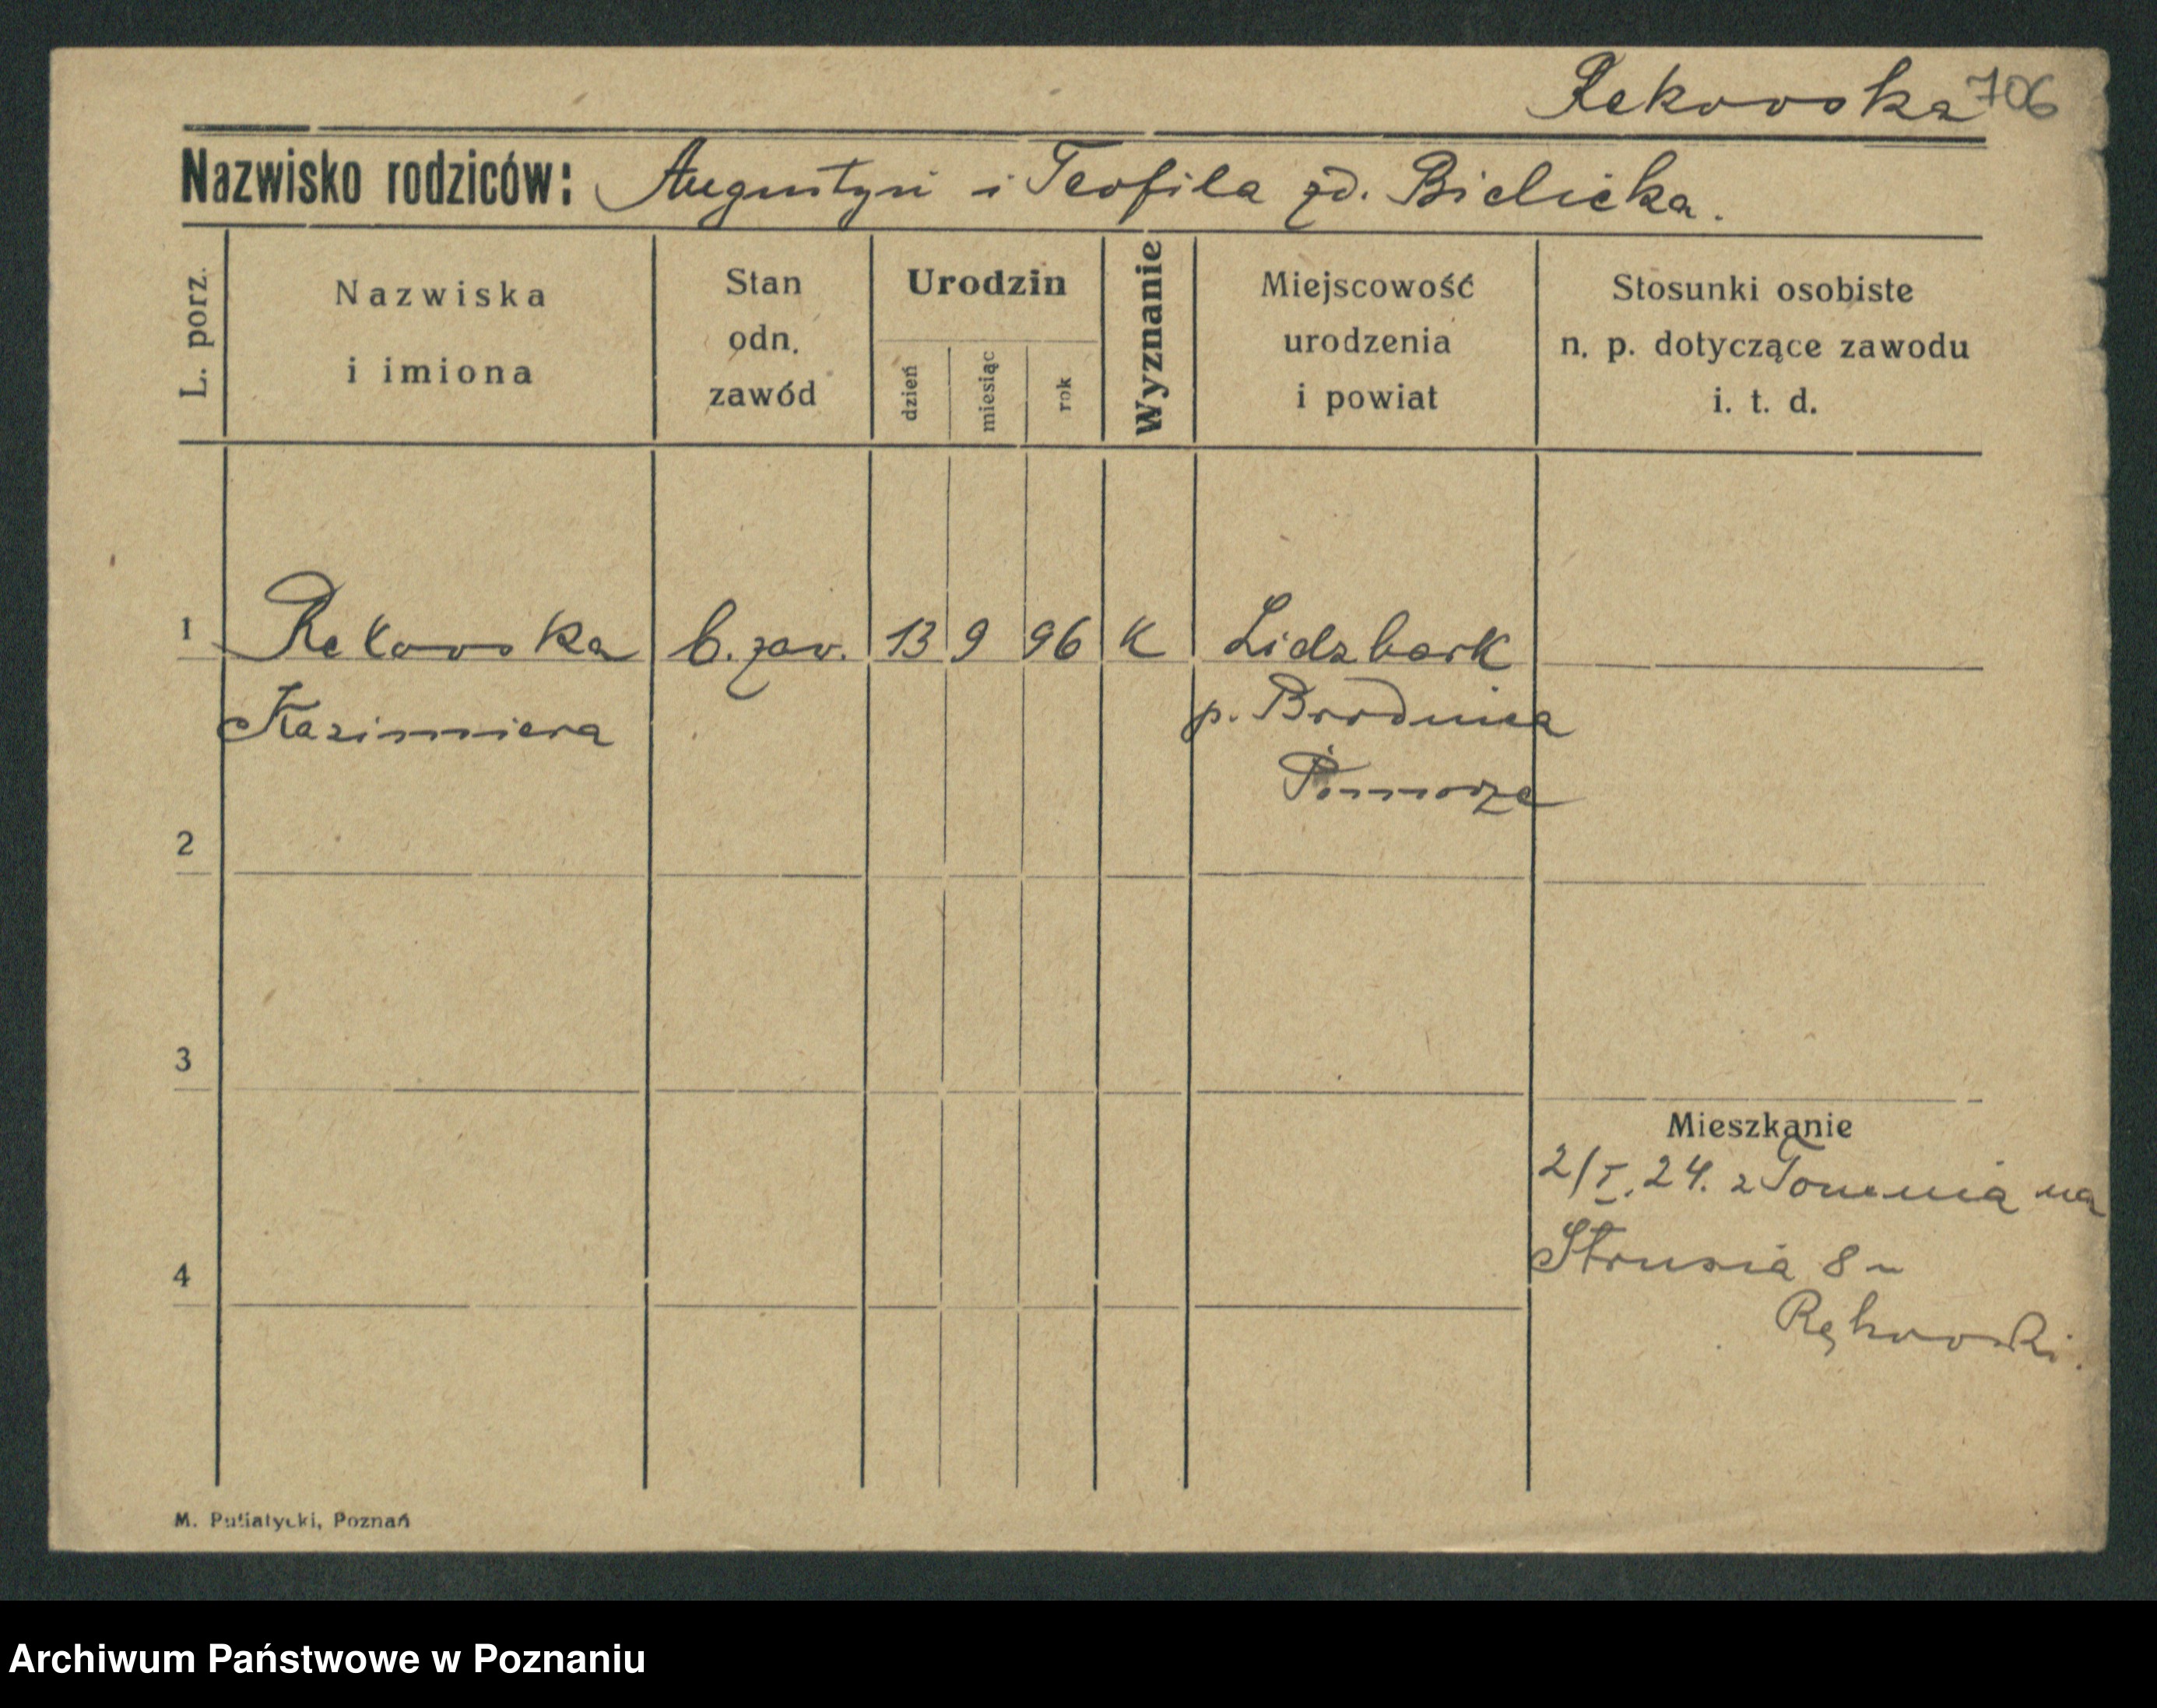 Rekowska 706
Nazwisko rodziców: Augustyn i Teofila zd. Bielicka.
L. porz.
Nazwiska
i imiona
Stan
odn.
zawód
Urodzin
dzień
miesiąc
rok
Wyznanie
Miejscowość
urodzenia
i powiat
Stosunki osobiste
n. p. dotyczące zawodu
i. t. d.
1 Rekowska b. zaw. 13 9 96 K Lidzbark
Kazimiera p. Brodnica
Pomorze
2
3
Mieszkanie
2/I. 24. z Torunia na
4 Strusia 8
Rękowski.
M. Putiatycki, Poznań
Archiwum Państwowe w Poznaniu